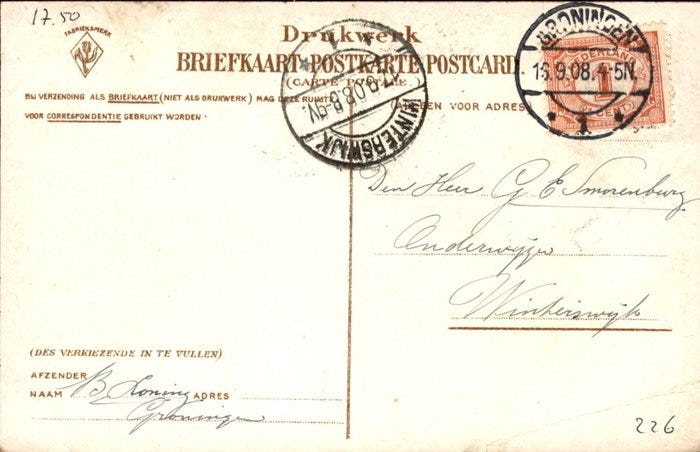 17.50
FABRIEKSMERK
Drukwerk
BRIEFKAART-POSTKARTE-POSTCARD
(CARTE POSTALE.)
BIJ VERZENDING ALS BRIEFKAART (NIET ALS DRUKWERK) MAG DEZE RUIMTE
VOOR CORRESPONDENTIE GEBRUIKT WORDEN
(ALLEEN VOOR ADRES)
WINTERSWIJK
17.9.08.8-9V.
GRONINGEN
16.9.08.4-5N
1
NEDERLAND
1
CENT
Den Heer G E Smorenburg
Onderwijzer
Winterswijk
(DES VERKIEZENDE IN TE VULLEN)
AFZENDER
NAAM B Koning ADRES
Groningen
226